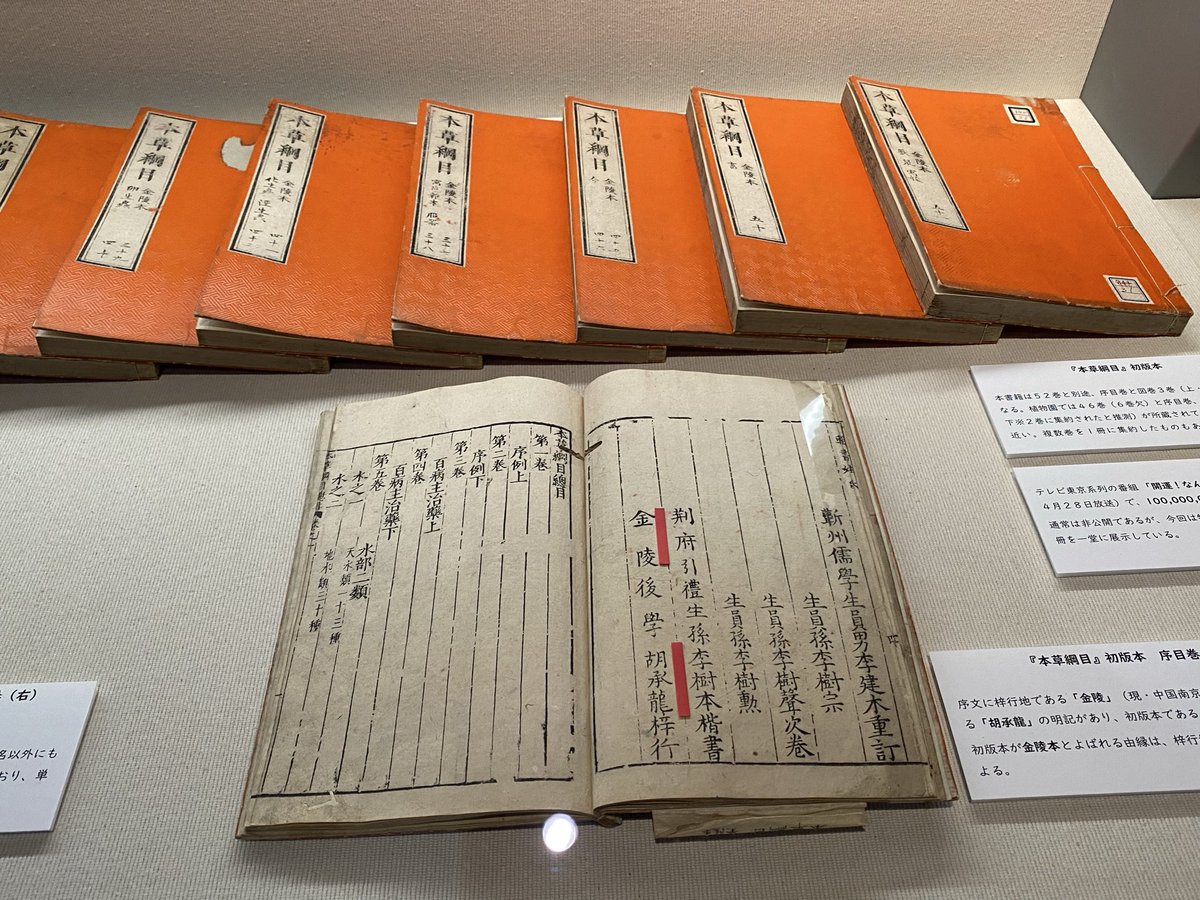 本草綱目
金陵本
卵生蟲
三十九
四十
本草綱目
金陵本
化生蟲 湿生蟲
四十一
四十二
本草綱目
金陵本
服器
三十七
三十八
本草綱目
金陵本
本草綱目
金陵本
五十
本草綱目
金陵本
輯書姓氏
蘄州儒學生員男李建木重訂
生員孫李樹宗
生員孫李樹聲次卷
生員孫李樹勳
荆府引禮生孫李樹本楷書
金陵後學胡承龍梓行
本草綱目總目
第一卷
序例上
第二卷
序例下
第三卷
百病主治藥上
第四卷
百病主治藥下
第五卷
水部二類
水之一 天水類一十三種
水之二 地水類三十種
『本草綱目』初版本
本書籍は52巻と別途、序目巻と図巻3巻（上・
なる。植物園では46巻（6巻欠）と序目巻、
下※2巻に集約されたと推測）が所蔵されて
近い。複数巻を1冊に集約したものもあ
テレビ東京系列の番組「開運!なん
4月28日放送）で、100,000,
通常は非公開であるが、今回は
冊を一堂に展示している。
『本草綱目』初版本 序目巻
序文に梓行地である「金陵」（現・中国南京
る「胡承龍」の明記があり、初版本である
初版本が金陵本とよばれる由縁は、梓行
よる。
（右）
名以外にも
おり、単